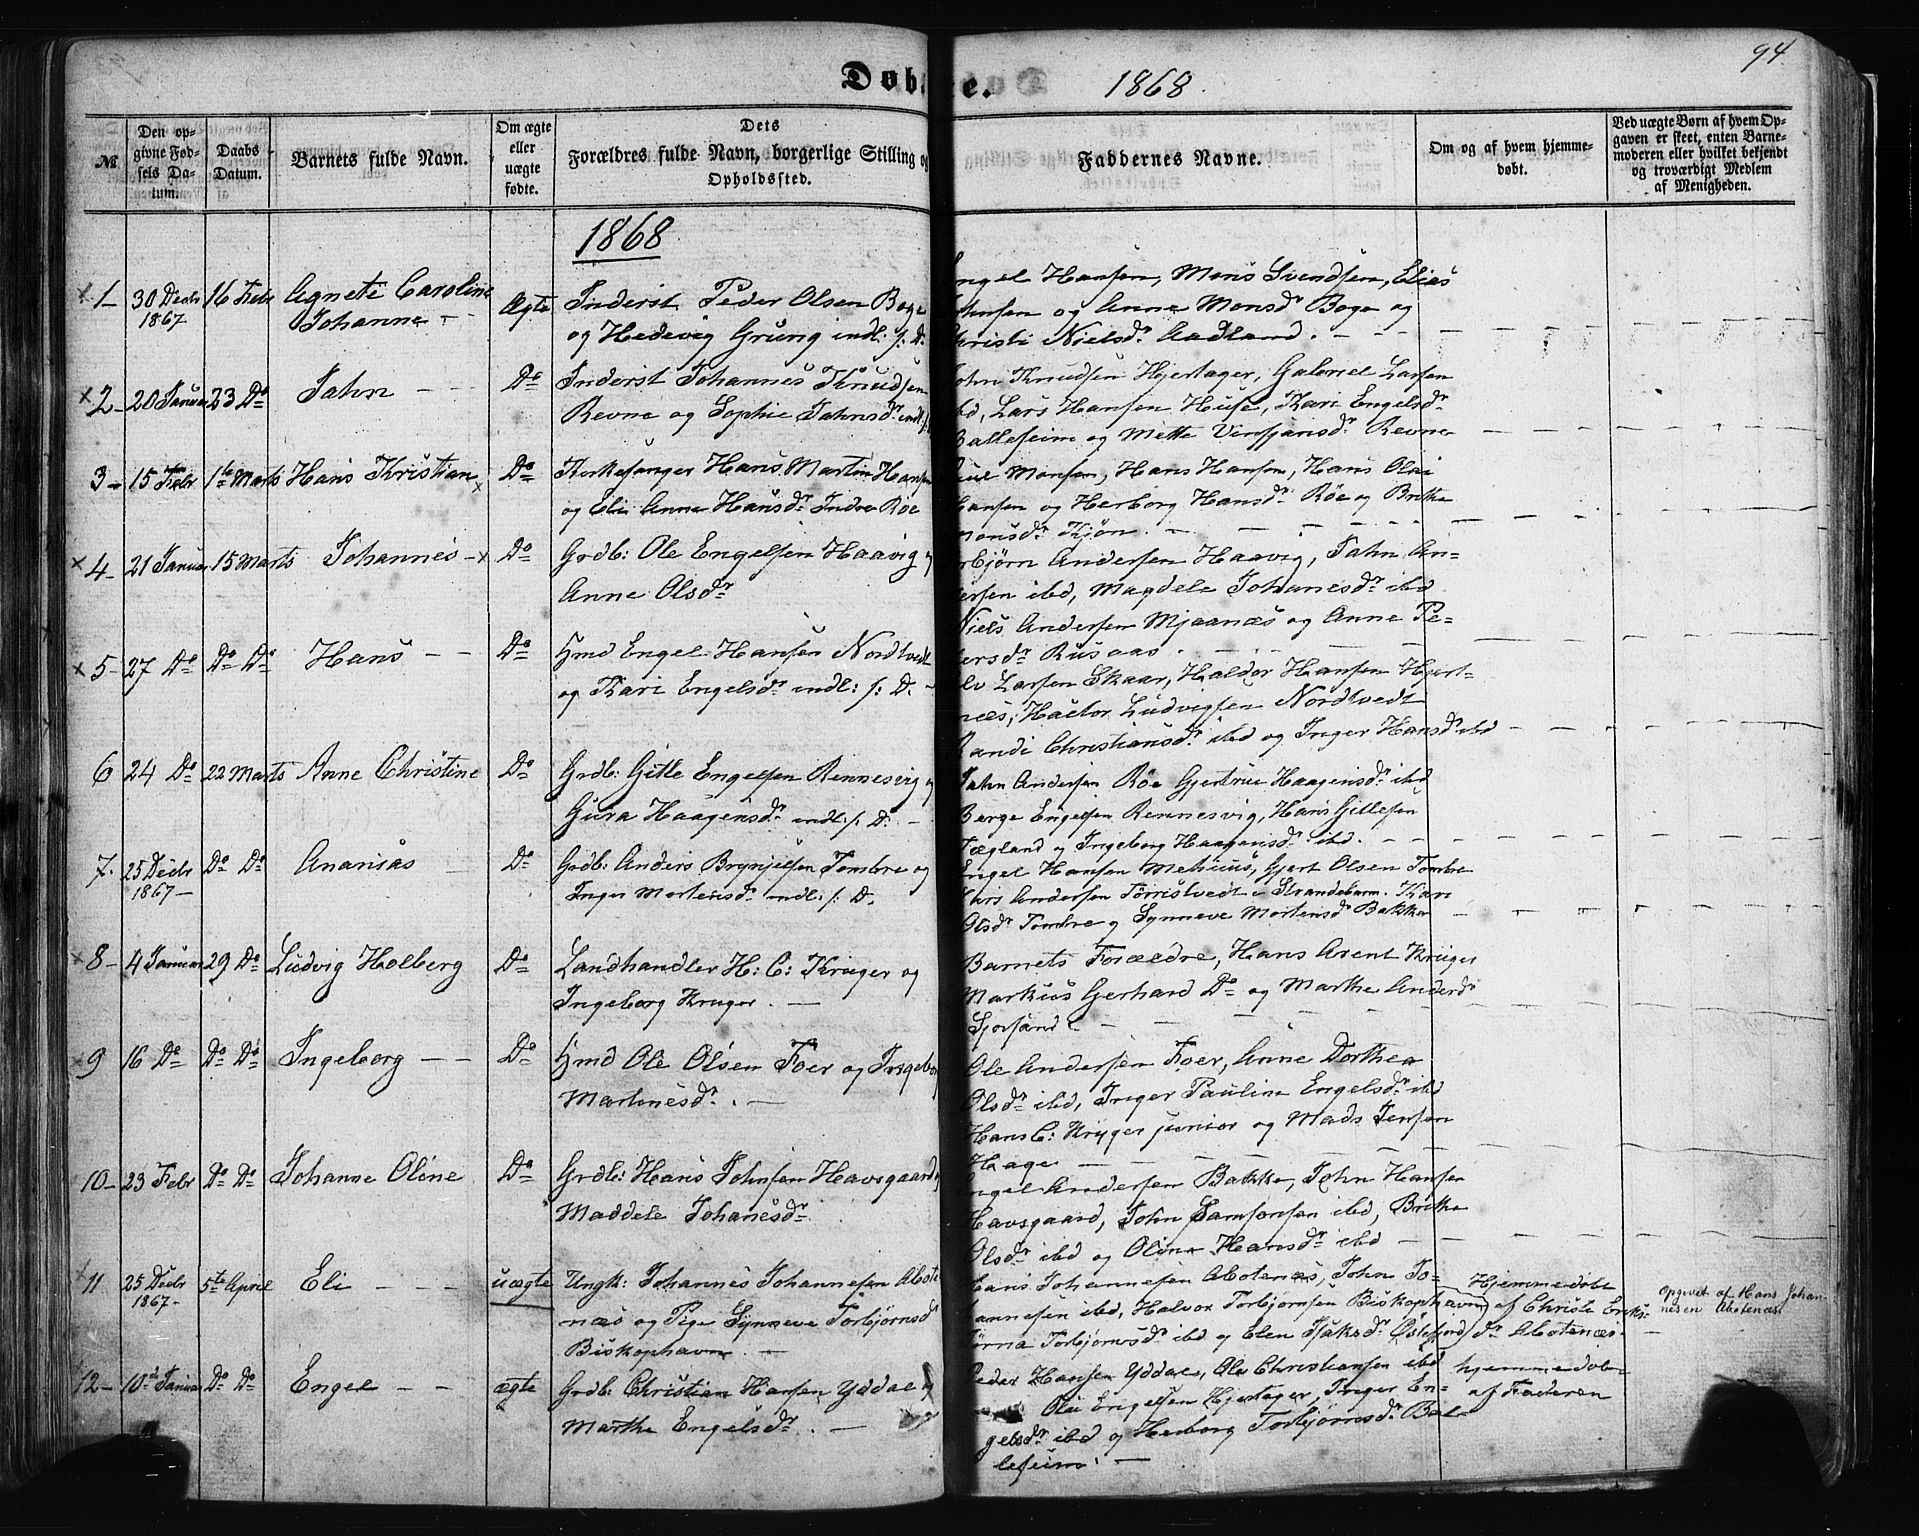 94
Døbte. 1868.
№
Den opgivne Fødsels Datum.
Daabs Datum.
Barnets fulde Navn.
Om ægte eller uægte fødte.
Dets Forældres fulde Navn, borgerlige Stilling og Opholdssted.
Faddernes Navne.
Om og af hvem hjemmedøbt.
Ved uægte Børn af hvem Opgaven er skeet, enten Barnemoderen eller hvilket bekjendt og troværdigt Medlem af Menigheden.
1868
1 30 Decbr 1867 16 Febr Agnete Caroline Johanne Ægte
Inderst Peder Olsen Boge
og Hedevig Grung indl: f: D.
Engel Hansen, Mons Svendsen, Elias
og Anne Monsdr Boge og
Christi Nielsdr Aadland.
2 20 Januar 23 Do Jahn Do
Inderst Johannes Knudsen
Revne og Sophie Jahnsdr indl f:
John Knudsen Hjertager, Gabriel Larsen
ibd, Lars Hansen Huse, Kari Engelsdr
Balleseim og Mette Vinsjansdr Revne
3 15 Febr 1te Marts Hans Kristian Do
Kirkesanger Hans Martin Hansen
og Eli Anne Hansdr Indre Røe
Monsen, Hans Hansen, Hans Olai
Hansen og Herborg Hansdr Røe og Brithe
Monsdr Kjøn.
4 21 Januar 15 Marts Johannes Do
Grdb: Ole Engelsen Haavig og
Anne Olsdr
Torbjørn Andersen Haavig, Jahn An-
dersen ibd, Magdele Johanesdr ibd
Niels Andersen Mjaanæs og Anne Pe-
dersdr Rusaas.
5 27 Do Do Do Hans Do
Hmd Engel Hansen Nordtvedt
og Kari Engelsdr indl: f: D.
Larsen Skaar, Haldor Hansen Hjert-
næs, Hactor Ludvigsen Nordtvedt
Randi Christiansdr ibd og Inger Hansdr ibd
6 24 Do 22 Marts Anne Christine Do
Grdb: Gitle Engelsen Rennesvig og
Gura Haagensdr indl: f: D.
Jahn Andersen Røe Gjertrue Haagensdr ibd
Berge Engelsen Rennesvig, Hans Gillesen
Tegland og Ingeborg Haagensdr ibd.
7. 25 Decbr 1867 Do Do Ananias Do
Grdb: Anders Brynjelsen Tombre og
Inger Mortensdr indl: f: D.
Engel Hansen Mehuus, Gjert Olsen Tombre
Lars Andersen Tørristvedt i Strandebarm. Kari
Olsdr Tombre og Synneve Mortensdr Bakke
8 4 Januar 29 Do Ludvig Holberg Do
Landhandler H: C: Krüger og
Ingeborg Kruger.
Barnets Forældre, Hans Arent Krüger
Markus Gerhard Do og Marthe Andersdr
Sjosand
9 16 Do Do Do Ingeborg Do
Hmd Ole Olsen Foer og Ingeborg
Martinesdr.
Ole Andersen Foer, Anne Dorthea
Olsdr ibd, Inger Pauline Engelsdr ibd
Hans C: Kryger junior og Mads Jensen
Haage
10 23 Febr Do Do Johanne Oline Do
Grdb: Hans Johnsen Havsgaard og
Maddele Johanesdr
Engel Andersen Bakke, John Hansen
Havsgaard, John Samsonsen ibd, Brithe
Olsdr ibd og Oline Hansdr ibd
11 25 Decbr 1867 5te April Eli uægte
Ungk: Johannes Johannesen Abote-
næs og Pige Synneve Torbjørnsdr
Biskophavn.
Hans Johannesen Abotenæs, John Jo-
hannesen ibd, Halvor Torbjørnsen Biskophavn
Torbjørnsdr ibd og Elen Isaksdr Østefjord
Hjemmedøbt
af Christi Eriks-
dr Abotenæs.
Opgivet af Hans Johan-
nesen Abotenæs
12 10de Januar Do Do Engel ægte
Grdb: Christian Hansen Yddal og
Marthe Engelsdr.
Peder Hansen Yddal, Ole Christiansen ibd
Olai Engelsen Hjertager, Inger En-
gelsdr ibd og Herborg Torbjørnsdr Bal-
leseim.
hjemmedøbt
af Faderen